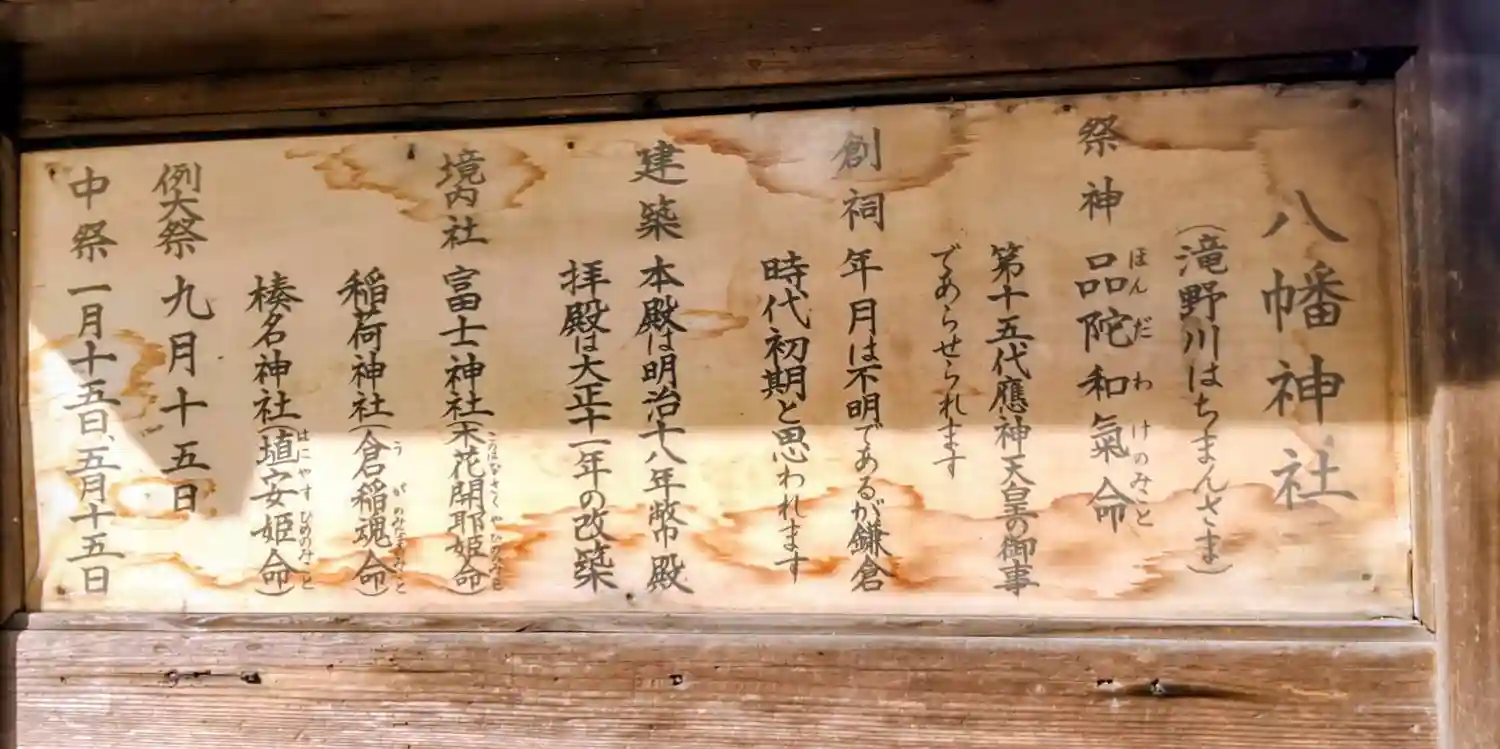 八幡神社
（滝野川はちまんさま）
祭神 品陀和氣命
ほんだわけのみこと
第十五代應神天皇の御事
であらせられます
創祠 年月は不明であるが鎌倉
時代初期と思われます
建築 本殿は明治十八年幣殿
拝殿は大正十一年の改築
境内社 富士神社（木花開耶姫命）
このはなさくやひめのみこと
稲荷神社（倉稲魂命）
うがのみたまのみこと
榛名神社（埴安姫命）
はにやすひめのみこと
例大祭 九月十五日
中祭 一月十五日、五月十五日